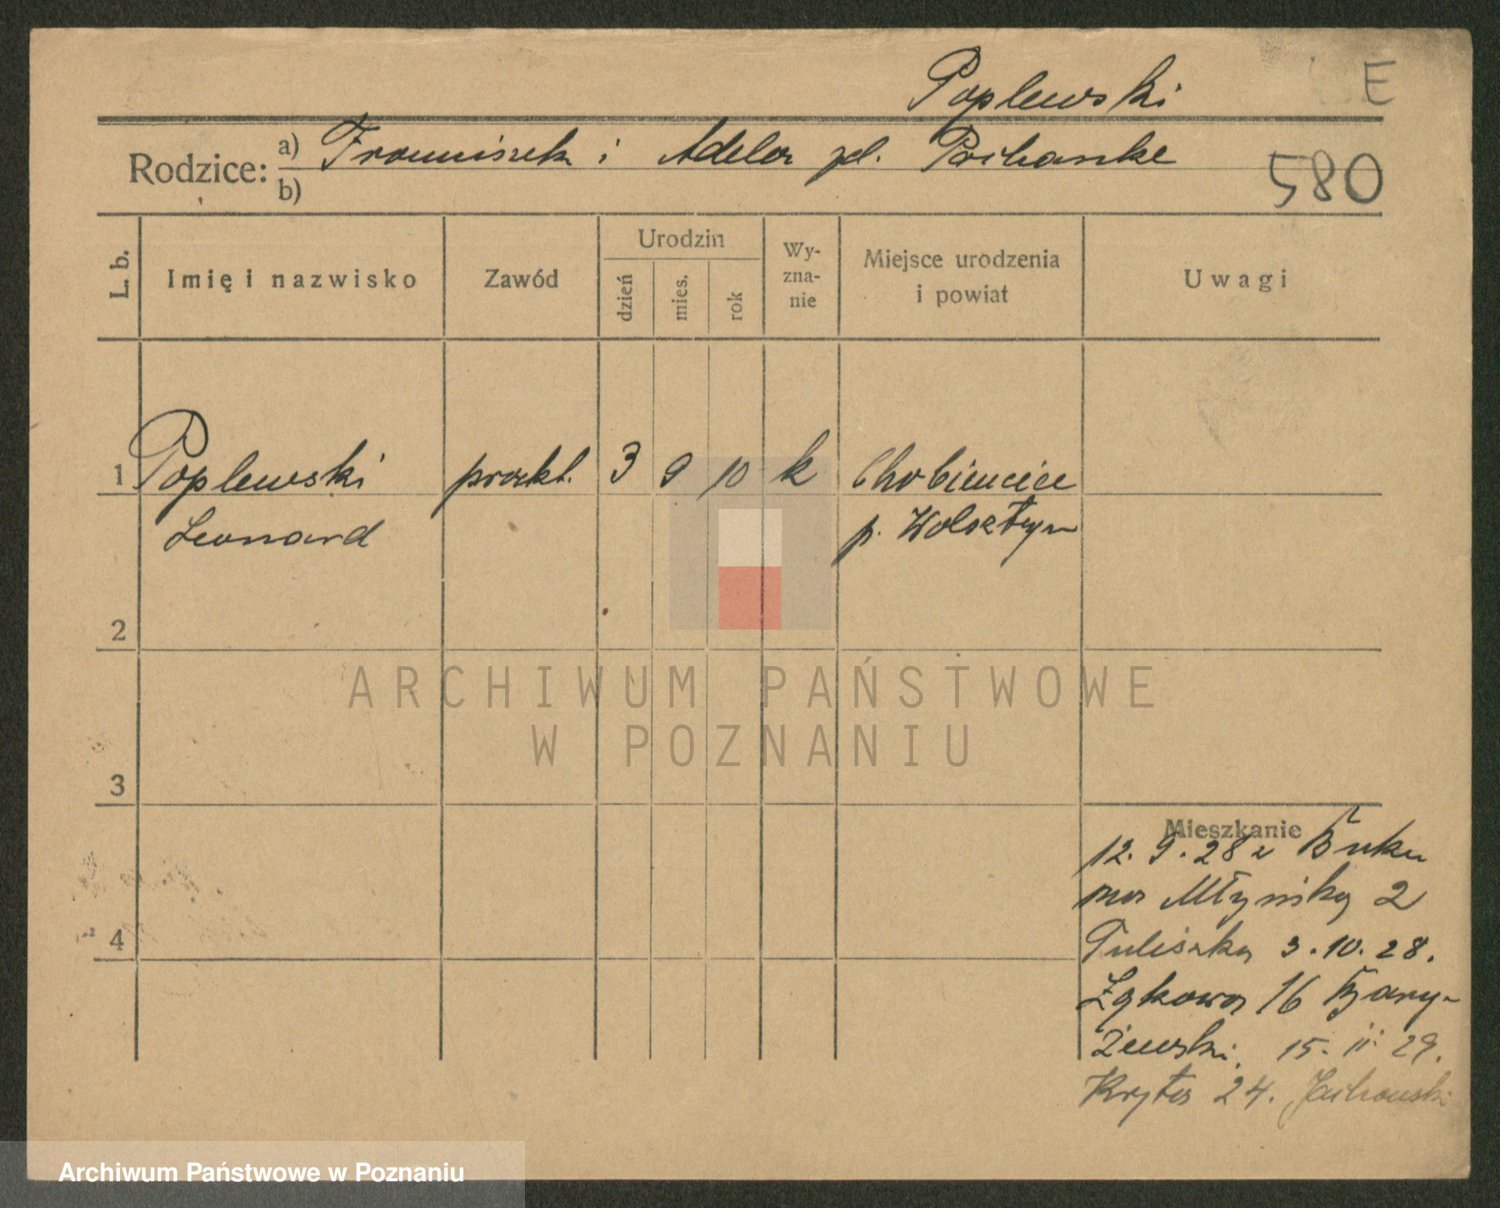 Poplewski
E
Rodzice: a) Franciszek i Adela pl.
b)
580
L. b.
Imię i nazwisko
Zawód
Urodzin
dzień
mies.
rok
Wy-
zna-
nie
Miejsce urodzenia
i powiat
Uwagi
1 Poplewski prakt. 3 9 10 k Chobienice
Leonard p. Wolsztyn
2
3
4
Mieszkanie
12. 9. 28 z Buku
na Młyńską 2
3. 10. 28.
Łąkowa 16
15. II. 29.
Kręta 24.
ARCHIWUM PAŃSTWOWE
W POZNANIU
Archiwum Państwowe w Poznaniu